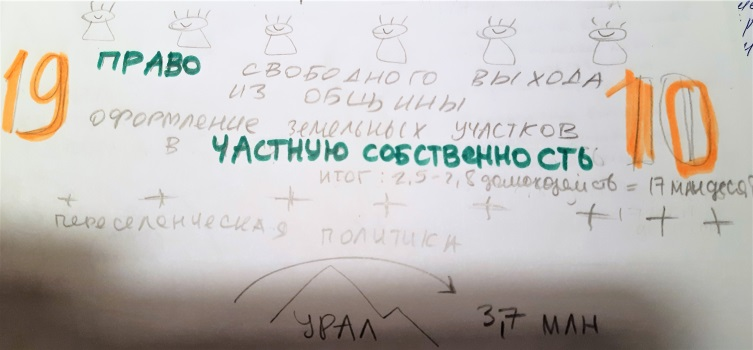 19 10
ПРАВО СВОБОДНОГО ВЫХОДА
ИЗ ОБЩИНЫ
ОФОРМЛЕНИЕ ЗЕМЕЛЬНЫХ УЧАСТКОВ
В ЧАСТНУЮ СОБСТВЕННОСТЬ
ИТОГ: 2,5-2,8 домохозяйств = 17 млн десят
переселенческая ПОЛИТИКА
УРАЛ 3,7 МЛН